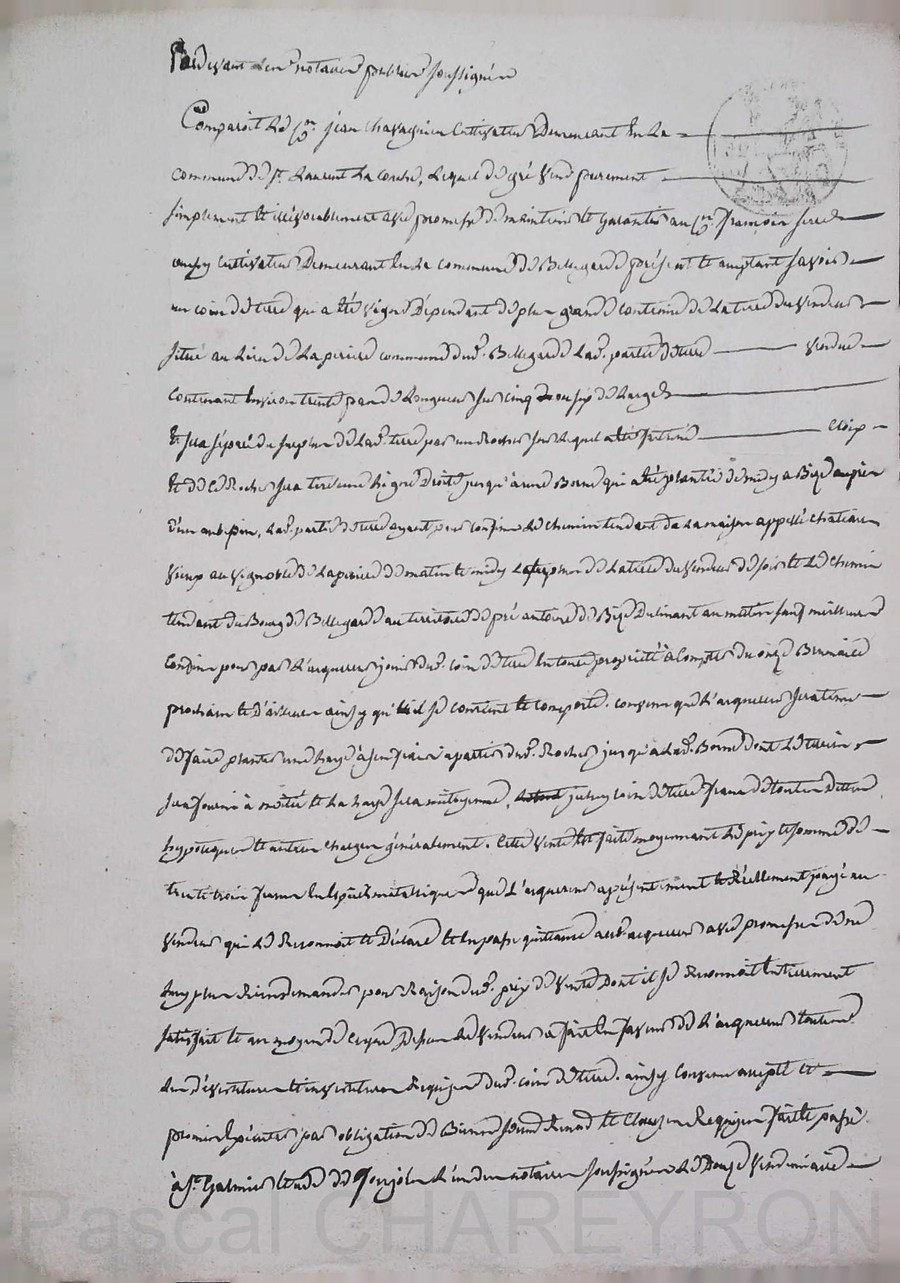 Pardevant les notaires publics soussignés
Comparoit Le d. Cn. jean Chavagnieu Cultivateur Demeurant En La
commune de St. Laurent La Conche, Lequel de gré vend purement
simplement et irrévocablement avec promesse de maintenir et Garantir au Cn. françois
aussy Cultivateur Demeurant En La commune de Bellegarde présent et acceptant savoir
un coin de terre qui a été vigne Dépendant de plus grande contenue de La terre du vendeur
situé au Lieu de La commune dud. Bellegarde Lad. partie de terre vendue
contenant Environ trente pas de Longueur sur cinq ou six de Large
Et sera séparé du surplus de Lad. terre par un Rocher sur Lequel a été une croix
Et de ce Rocher sera tiré une Ligne Droite jusqu'à une Borne qui a été plantée de midy a Bize au pied
d'un aubepin, Lad. partie de terre ayant pour confins Le chemin tendant de La maison appellé chateau
vieux au vignoble de La de matin et midy Le surplus de La terre du vendeur de soir et Le chemin
tendant du Bourg de Bellegarde au territoire de pré antoine de Bize Declinant au matin sauf meilleurs
confins pour par L'acquereur jouir dud. coin de terre En toute propriété à Compter du onze Brumaire
prochain et D'ainsy qu'il se contient et comporte. convenu que L'acquereur sera tenu
de faire planter une haye à ses frais a partir dud. Rocher jusqu'a Lad. Borne dont Le terrein
sera fourni à moitié et La haye sera mitoyenne, coin de terre franc de toutes Dettes
hypotheques et autres charges généralement. Cette vente Est faite moyennant Le prix et somme de
trente trois francs En Especes metalliques que L'acquereur a présentement et Réellement payé au
vendeur qui Le Reconnoit et Déclare et En passe quittance aud. acquereur avec promesse de ne
Luy plus Rien demander pour Raison dud. prix de vente Dont il se Reconnoit Entierement
satisfait et au moyen de ce Le vendeur a fait En faveur de L'acquereur toutes
Les Dévestitures et investitures Requises dud. coin de terre. ainsy convenu accepté et
promis Executer par obligation de Biens soumis Renoncé et Clauses Requises fait et passé
à St. Galmier Etude de L'un des notaires soussignés Le Douze Vendemiaire
Pascal CHAREYRON